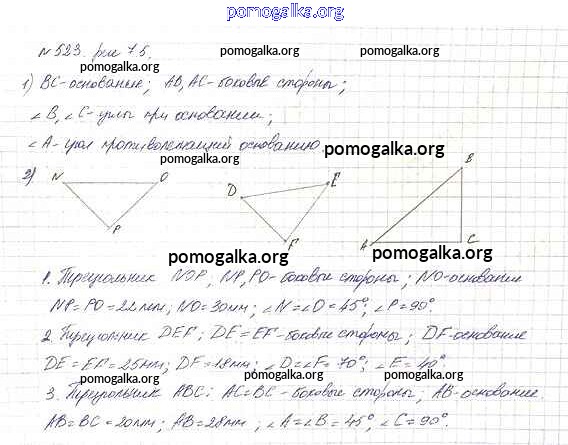 pomogalka.org
№ 523. рис 75.
pomogalka.org pomogalka.org
pomogalka.org
1) BC-основание; AB, AC-боковые стороны;
∠B, ∠C-углы при основании;
∠A-угол противолежащий основанию.
pomogalka.org
pomogalka.org
2) N O D E F P A B C
pomogalka.org
pomogalka.org
1. Треугольник NOP; NP, PO-боковые стороны; NO-основание
NP=PO=22мм; NO=30мм; ∠N=∠O=45°; ∠P=90°.
pomogalka.org pomogalka.org
2. Треугольник DEF; DE=EF-боковые стороны; DF-основание
DE=EF=25мм; DF=18мм; ∠D=∠F=70°; ∠E=40°.
pomogalka.org pomogalka.org
3. Треугольник ABC: AC=BC-боковые стороны; AB-основание.
AB=BC=20мм; AB=28мм; ∠A=∠B=45°, ∠C=90°.
pomogalka.org pomogalka.org